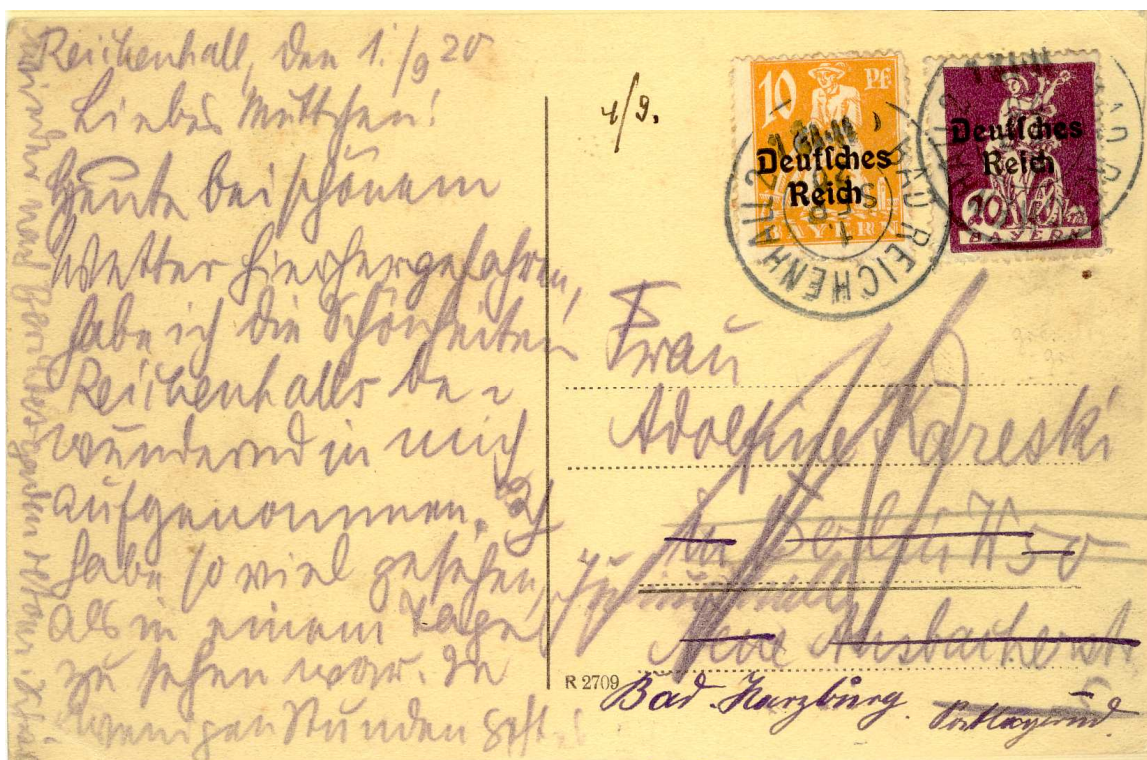 Reichenhall, den 1./9 20
Liebes Muttchen!
Heute bei schönem
Wetter hierhergefahren,
habe ich die Schönheiten
Reichenhalls be-
wundernd in mich
aufgenommen. Ich
habe so viel gesehen,
als in einem Tage
zu sehen war. In
wenigen Stunden geht es
4/9.
10 PF
Deutsches
Reich
BAYERN
Deutsches
Reich
10
BAYERN
BAD REICHENHALL 2
1. SEP.
Frau
Adolfine Kareski
in Berlin W 50
Neue Ansbacherstr
R 2709
Bad Harzburg. Postlagernd